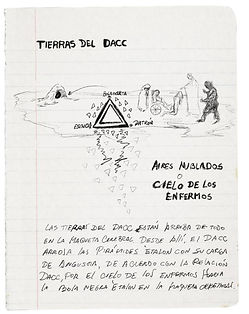 TIERRAS DEL DACC
ESENCIA
PATRÓN
AIRES NUBLADOS
O
CIELO DE LOS
ENFERMOS
LAS TIERRAS DEL DACC ESTÁN ARRIBA DE TODO
EN LA MAQUETA CEREBRAL DESDE ALLÍ, EL DACC
ARROJA LAS PIRÁMIDES ETALON CON SU CARGA
DE ANGUSTIA, DE ACUERDO CON LA RELACIÓN
DACC, POR EL CIELO DE LOS ENFERMOS HACIA
LA BOLA NEGRA ETALON EN LA